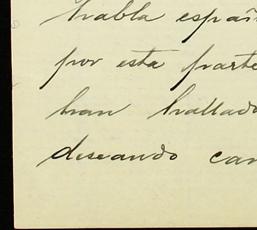 habla españ
por esta parte
han hallado
deseando can